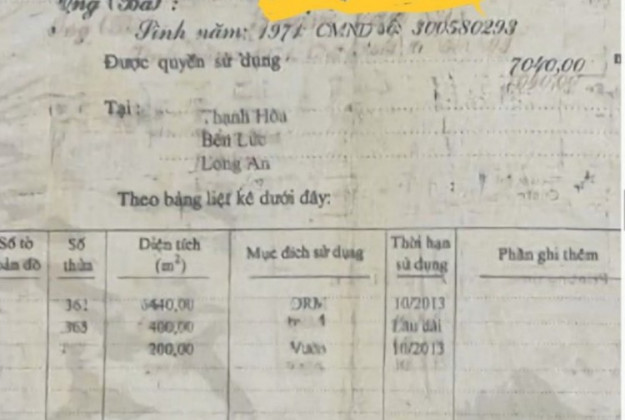 Ông (Bà) :
Sinh năm: 1971 CMND số: 300580293
Được quyền sử dụng 7040,00
Tại : Thạnh Hòa
Bến Lức
Long An
Theo bảng liệt kê dưới đây:
Số tờ bản đồ Số thửa Diện tích (m²) Mục đích sử dụng Thời hạn sử dụng Phần ghi thêm
361 6440,00 10/2013
363 400,00 Lâu dài
200,00 Vườn 10/2013